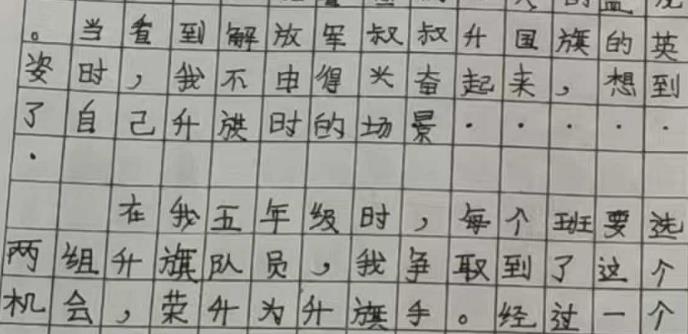 。当看到解放军叔叔升国旗的英
姿时，我不由得兴奋起来，想到
了自己升旗时的场景·····
·
在我五年级时，每个班要选
两组升旗队员，我争取到了这个
机会，荣升为升旗手。经过一个